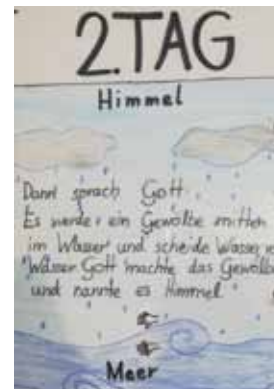 2. TAG
Himmel
Dann sprach Gott:
Es werde ein Gewölbe mitten
im Wasser und scheide Wasser
Wasser Gott machte das Gewölbe
und nannte es Himmel
Meer